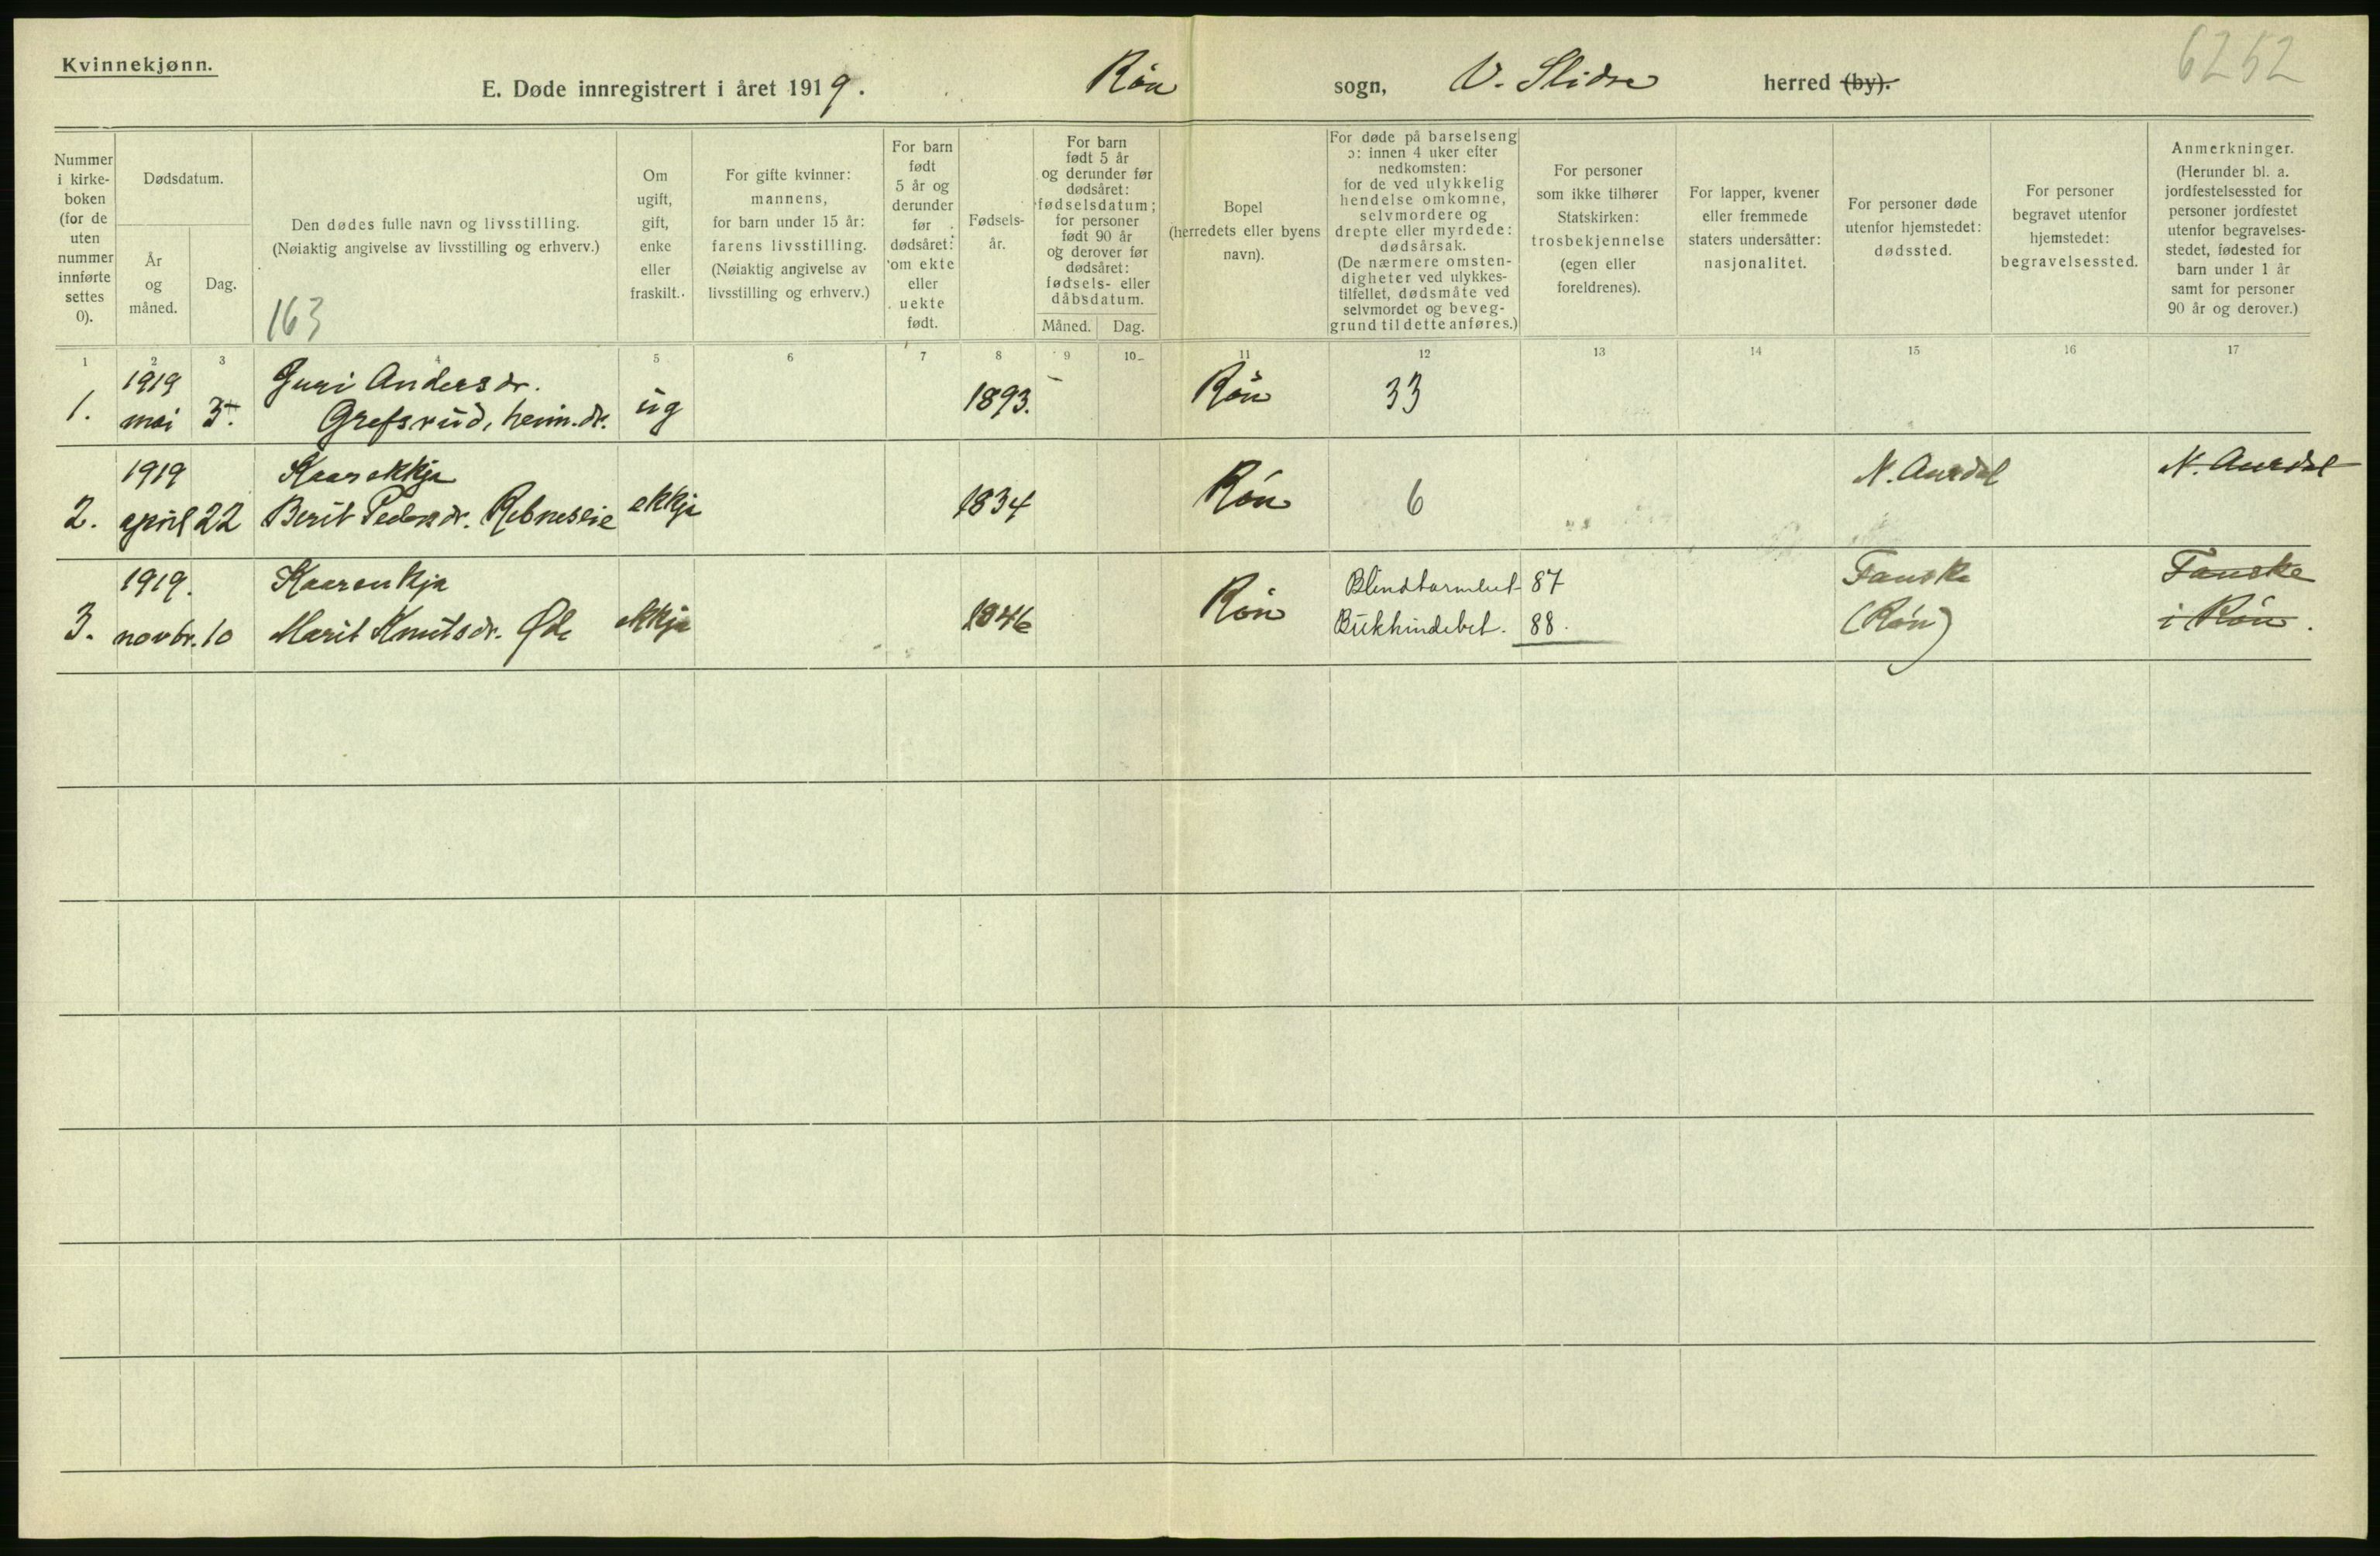 Kvinnekjønn.
6252
E. Døde innregistrert i året 1919. Røn sogn, V. Slidre herred (by).
Nummer i kirke- boken (for de uten nummer innførte settes 0).
Dødsdatum.
År og måned.
Dag.
Den dødes fulle navn og livsstilling.
(Nøiaktig angivelse av livsstilling og erhverv.)
163
Om ugift, gift, enke eller fraskilt.
For gifte kvinner: mannens, for barn under 15 år: farens livsstilling. (Nøiaktig angivelse av livsstilling og erhverv.)
For barn født 5 år og derunder før dødsåret: om ekte eller uekte født.
Fødsels- år.
For barn født 5 år og derunder før dødsåret: fødselsdatum; for personer født 90 år og derover før dødsåret: fødsels- eller dåbsdatum.
Måned. Dag.
Bopel (herredets eller byens navn).
For døde på barselseng ɔ: innen 4 uker efter nedkomsten: for de ved ulykkelig hendelse omkomne, selvmordere og drepte eller myrdede: dødsårsak. (De nærmere omsten- digheter ved ulykkes- tilfellet, dødsmåte ved selvmordet og beveg- grund til dette anføres.)
For personer som ikke tilhører Statskirken: trosbekjennelse (egen eller foreldrenes).
For lapper, kvener eller fremmede staters undersåtter: nasjonalitet.
For personer døde utenfor hjemstedet: dødssted.
For personer begravet utenfor hjemstedet: begravelsessted.
Anmerkninger. (Herunder bl. a. jordfestelsessted for personer jordfestet utenfor begravelses- stedet, fødested for barn under 1 år samt for personer 90 år og derover.)
1 2 3 4 5 6 7 8 9 10 11 12 13 14 15 16 17
1919 Guri Andersdr.
1. mai 3. Grefsrud, heim.dr. ug 1893. Røn 33
1919 Kaarekkja N. Aurdal N. Aurdal
2. april 22 Berit Pedersdr. Rebneslie ekkja 1834 Røn 6
1919. Kaarenkja Blindtarmbet 87 Fauske Fauske
3. novbr. 10 Marit Knutsdr. Øde ekkja 1846 Røn Bukhindebet. 88. (Røn) i Røn.